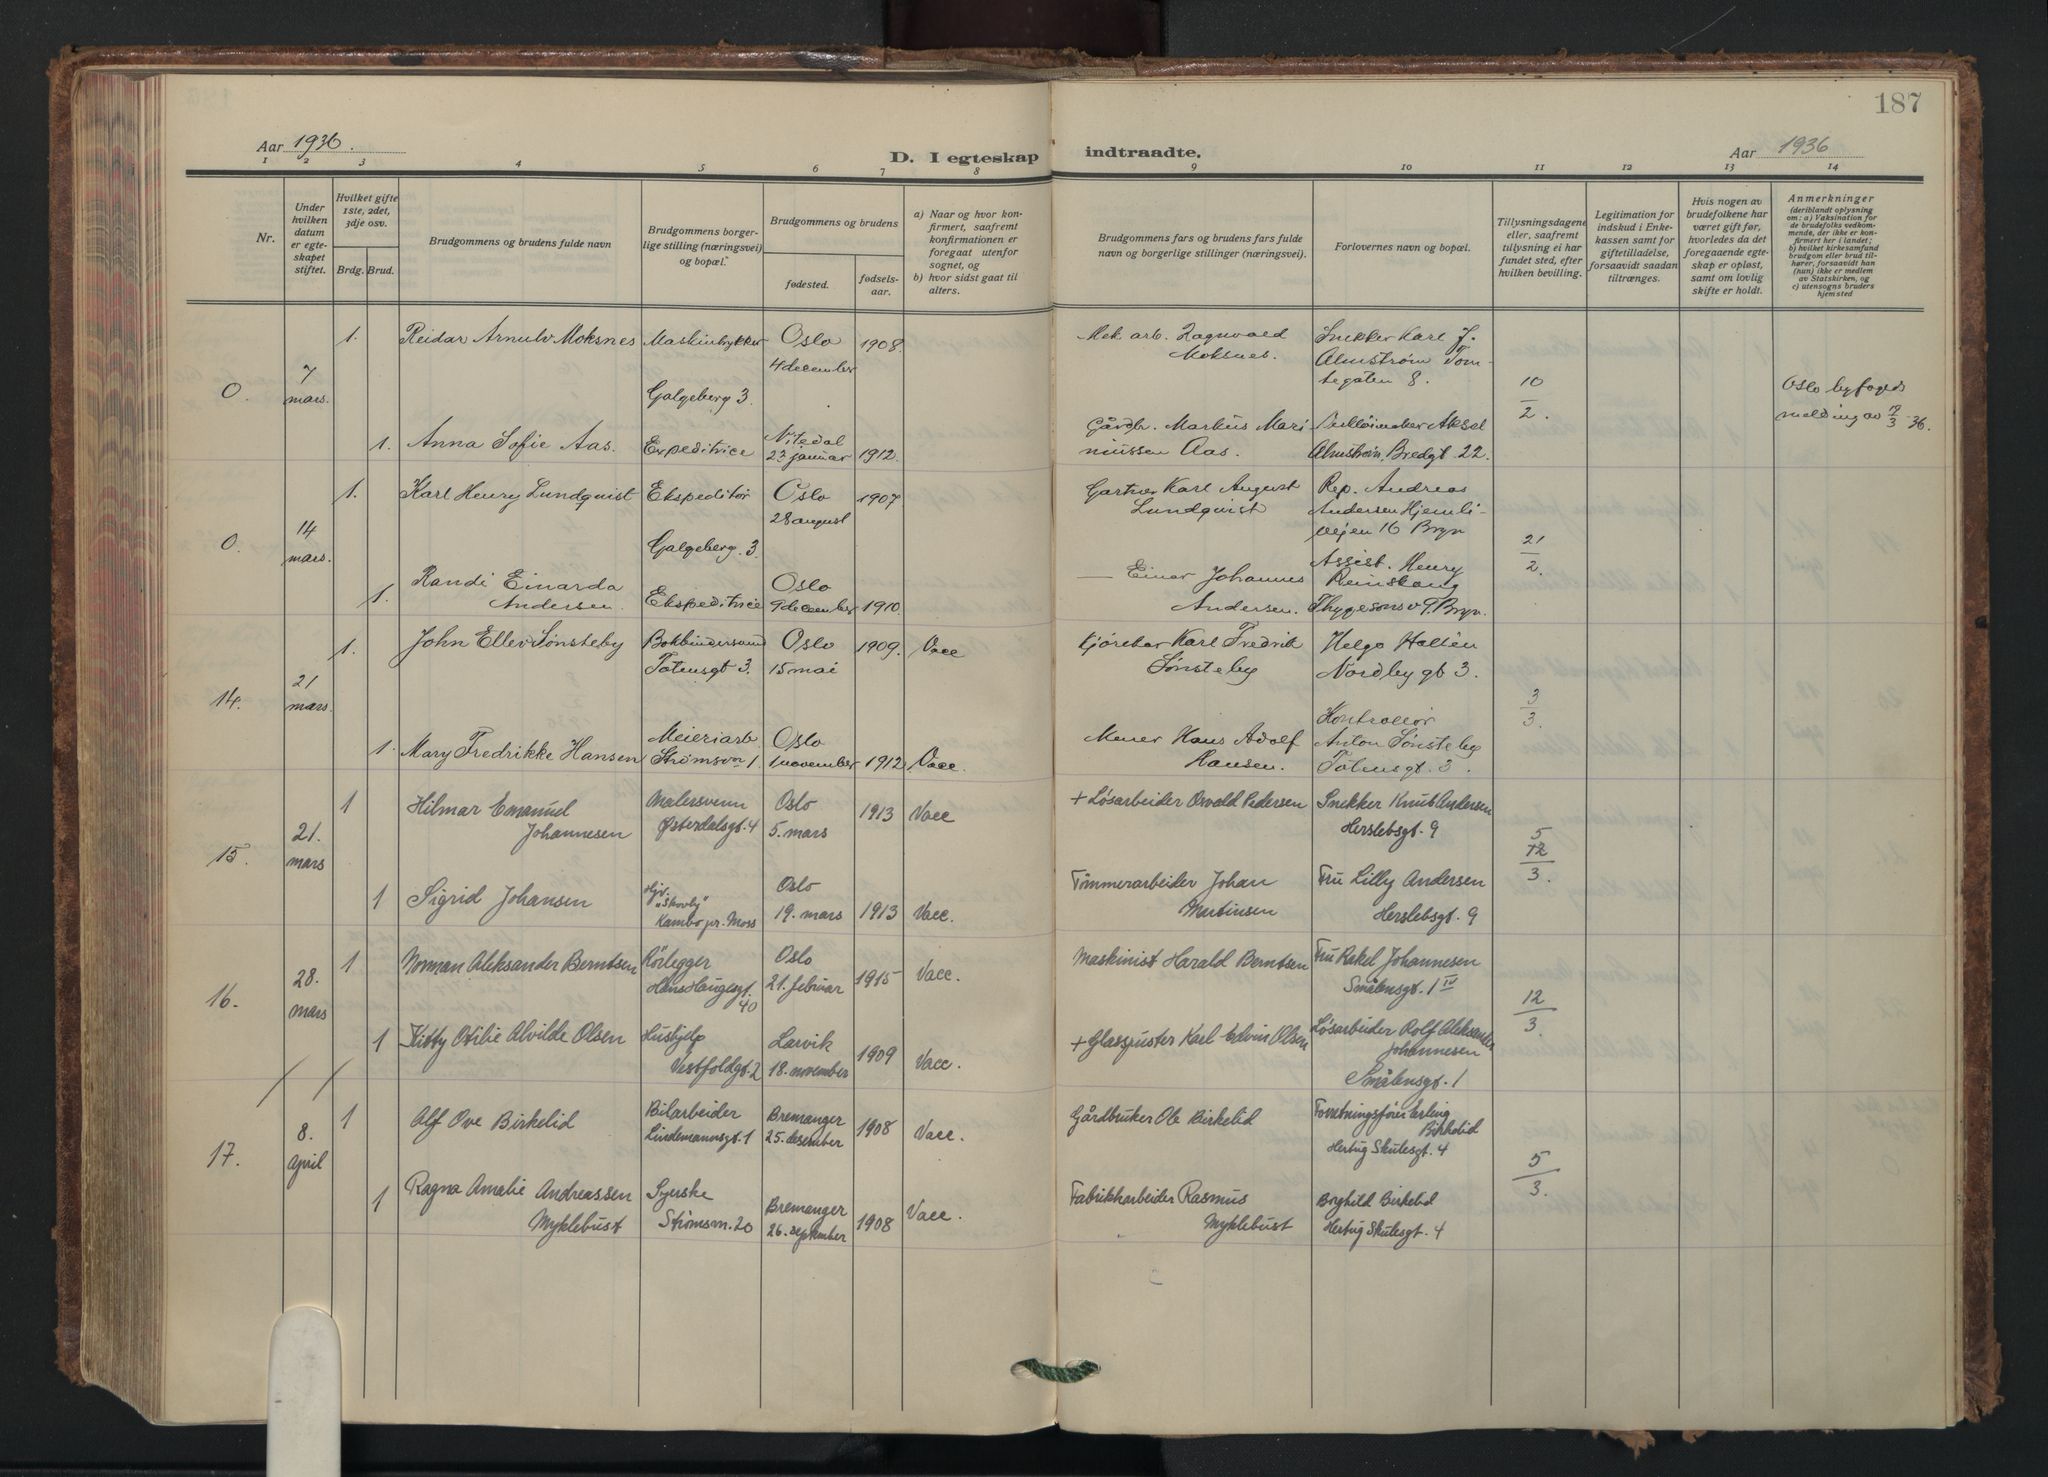 187
Aar 1936.
D. I egteskap indtraadte.
Aar 1936
1 2 3 4 5 6 7 8 9 10 11 12 13 14
Nr.
Under hvilken datum er egteskapet stiftet.
Hvilket gifte 1ste, 2det, 3dje osv.
Brdg. Brud.
Brudgommens og brudens fulde navn
Brudgommens borgerlige stilling (næringsvei) og bopæl.
Brudgommens og brudens
fødested.
fødselsaar.
a) Naar og hvor konfirmert, saafremt konfirmationen er foregaat utenfor sognet, og
b) hvor sidst gaat til alters.
Brudgommens fars og brudens fars fulde navn og borgerlige stillinger (næringsvei).
Forlovernes navn og bopæl.
Tillysningsdagene eller, saafremt tillysning ei har fundet sted, efter hvilken bevilling.
Legitimation for indskud i Enkekassen samt for giftetilladelse, forsaavidt saadan tiltrænges.
Hvis nogen av brudefolkene har været gift før, hvorledes da det foregaaende egteskap er opløst, samt om lovlig skifte er holdt.
Anmerkninger
(deriblandt oplysning om: a) Vaksination for de brudefolks vedkommende, der ikke er konfirmert her i landet; b) hvilket kirkesamfund brudgom eller brud tilhører, forsaavidt han (hun) ikke er medlem av Statskirken, og c) utensogns bruders hjemsted
0. 7 mars.
1. Reidar Arnulv Moksnes Maskintrykker Galgeberg 3. Oslo 4 december 1908. Mek. arb. Ragnvald Moksnes. Snekker Karl J. Almstrøm Tomtegaten 8. 10/2. Oslo byfogds melding av 7/3-36.
1. Anna Sofie Aas. Expeditrice Nitedal 23 januar 1912. Gårdbr. Markus Marinussen Aas. Aksel Almstrøm, Bredgt 22.
0. 14 mars.
1. Karl Henry Lundquist Ekspeditør Galgeberg 3. Oslo 28 august 1907. Gartner Karl August Lundquist Rep. Andreas Andersen Hjemliveien 16 Bryn 21/2.
1. Randi Einarda Andersen. Ekspeditrice Oslo 9 december 1910. — Einar Johannes Andersen. Assist. Henry Reinskaug Thygesons v 9. Bryn.
14. 21 mars.
1. John Ellev Sønsteby Bokbindersvend Totensgt 3. Oslo 15 mai 1909. Vacc Kjørekar Karl Fredrik Sønsteby Helge Hallén Nordbygt 3. 3/3.
1. Mary Fredrikke Hansen Meieriarb. Strømsvn 1. Oslo 1 november 1912 Vacc. Murer Hans Adolf Hansen. Kontrollør Anton Sønsteby Totensgt. 3.
15. 21. mars
1 Hilmar Emanuel Johannesen Malersvenn Østerdalsgt. 4 Oslo 5. mars 1913 Vacc + Løsarbeider Osvald Pedersen Snekker Knut Andersen Herslebsgt. 9 5 12/3.
1 Sigrid Johansen Hjv. "Skovly" Kambo pr. Moss Oslo 19. mars 1913 Vacc. Tømmerarbeider Johan Martinsen Fru Lilly Andersen Herslebsgt. 9
16. 28. mars
1 Norman Aleksander Berntsen Rørlegger Hans Haugesgt. 40 Oslo 21. februar 1915 Vacc. Maskinist Harald Berntsen Fru Rakel Johannesen Smålensgt. 1 IV 12/3.
1 Kitty Otilie Alvilde Olsen Hushjelp Vestfoldgt. 2 Larvik 18. november 1909 Vacc. + Glasspuster Karl Edvin Olsen Løsarbeider Rolf Aleksander Johannesen Smålensgt. 1
17. 8. april
1 Alf Ove Birkelid Bilarbeider Lindemannsgt. 1 Bremanger 25. desember 1908 Vacc. Gårdbruker Ole Birkelid Forretningsfører Erling Birkelid Hertug Skulesgt. 4 5/3.
1 Ragna Amalie Andreassen Myklebust Syerske Strømsvn. 20 Bremanger 26. september 1908 Vacc. Fabrikkarbeider Rasmus Myklebust Borghild Birkelid Hertug Skulesgt. 4